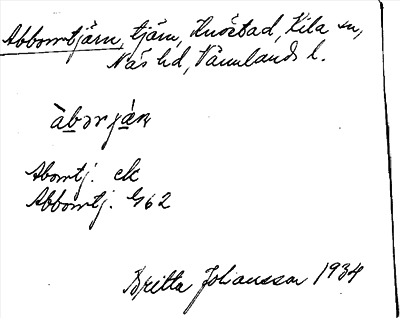 Abborrtjärn, tjärn, Knöstad, Kila sn,
Näs hd, Värmlands l.
àbərjàn
Aborrtj. ek
Abborrtj. G62
Britta Johansson 1934